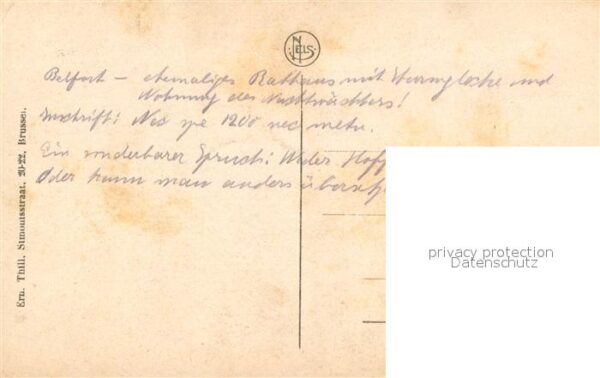 NELS
Belfort - ehemaliges Rathaus mit Sturmglocke und
Wohnung des Nachtwächters!
Inschrift: Nec spe 1200 nec metu.
Ein sonderbarer Spruch: Weder Hoff
Oder kann man anders überset
Ern. Thill. Simontsstraat. 20-22, Brussel.
privacy protection
Datenschutz